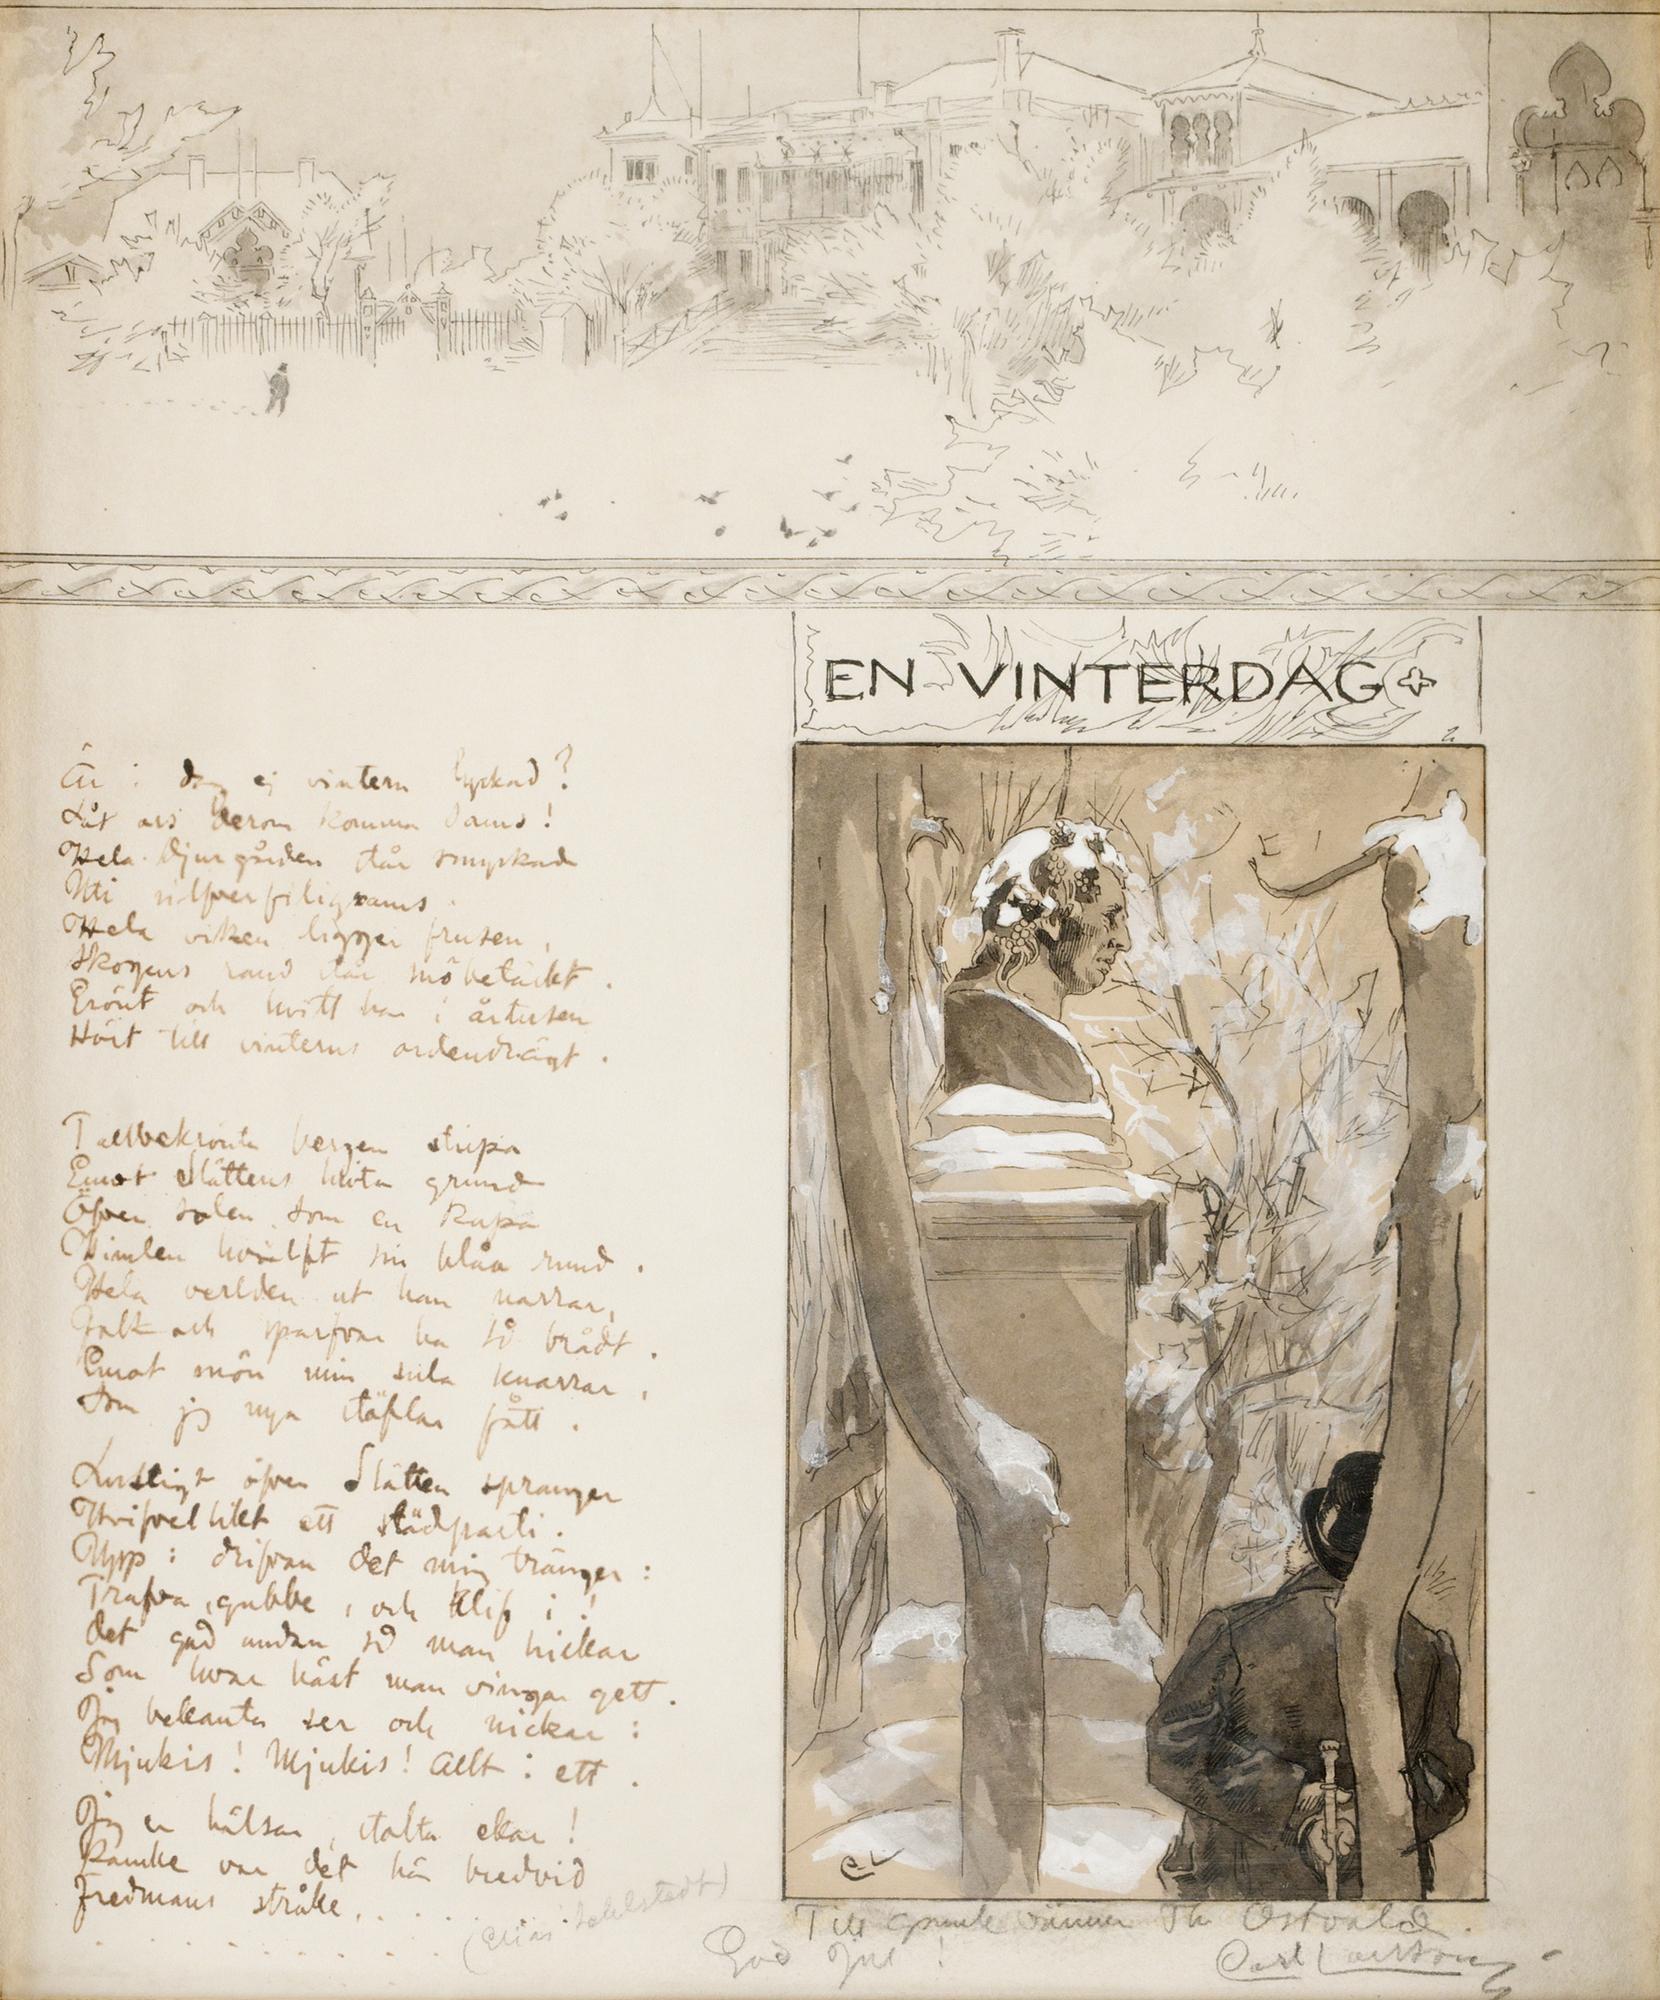 EN VINTERDAG
Är i dag ej vintern lyckad?
Låt oss berom komma sams!
Hela Djurgården står smyckad
Uti silfverfiligrams.
Hela viken ligger frusen,
Skogens rand står snöbetäckt.
Grönt och hvitt har i årtusen
Hört till vinterns ordendrägt.
Tallbekrönta bergen stupa
Emot Slättens hvita grund
Öfver dalen som en kupa
Himlen hvälft sin blåa rund.
Hela verlden ut han narrar,
Falk och sparfvar ha så brådt.
Emot snön min sula knarrar,
Som jag nya stöflar fått.
Lustigt öfver Slätten spränger
Hvifvel likt ett slädparti.
Upp i drifvan det mig tränger:
Trafva, gubbe, och klif i!
Det går undan så man hickar
Som hvar häst man vingar gett.
Jag bekanta ser och nickar:
Mjukis! Mjukis! Allt i ett.
Jag er hälsar, stolta ekar!
Kanske var det här bredvid
Fredmans stråke, . . . .
(Elias Sehlstedt)
C.L.
Till gamle vännen Th. Östvald.
God Jul!
Carl Larsson